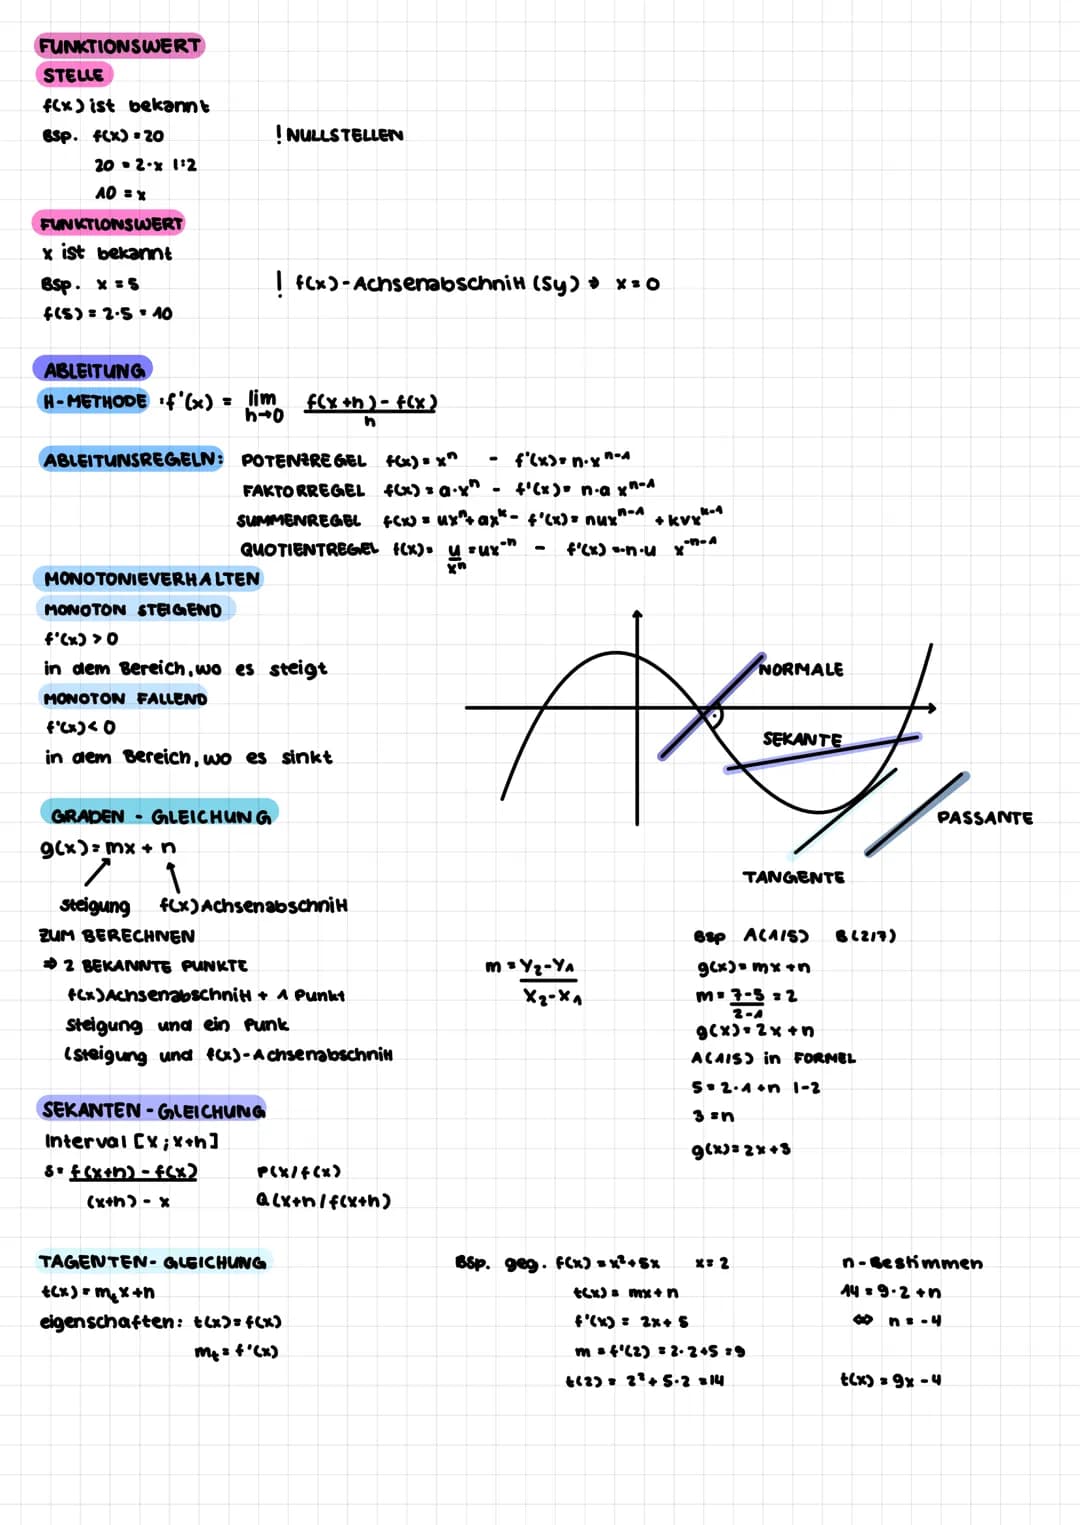 FUNKTIONSWERT
STELLE
f(x) ist bekannt
BSP. f(x) = 20
! NULLSTELLEN
20 = 2·x |:2
10 = x
FUNKTIONSWERT
x ist bekannt
BSP. x = 5
! f(x)-Achsenabschnitt (Sy) ⇒ x = 0
f(5) = 2·5 = 10
ABLEITUNG
H-METHODE : f'(x) = lim h→0 f(x+h) - f(x) / h
ABLEITUNSREGELN: POTENZREGEL f(x) = xⁿ - f'(x) = n·xⁿ⁻¹
FAKTORREGEL f(x) = a·xⁿ - f'(x) = n·a xⁿ⁻¹
SUMMENREGEL f(x) = uxⁿ + axᵏ - f'(x) = nuxⁿ⁻¹ + kvxᵏ⁻¹
QUOTIENTREGEL f(x) = u/xⁿ = ux⁻ⁿ - f'(x) = -n·u x⁻ⁿ⁻¹
MONOTONIEVERHALTEN
MONOTON STEIGEND
f'(x) > 0
in dem Bereich, wo es steigt
MONOTON FALLEND
f'(x) < 0
in dem Bereich, wo es sinkt
NORMALE
SEKANTE
PASSANTE
TANGENTE
GRADEN - GLEICHUNG
g(x) = mx + n
steigung f(x) Achsenabschnitt
ZUM BERECHNEN
⇒ 2 BEKANNTE PUNKTE
f(x) Achsenabschnitt + 1 Punkt
Steigung und ein Punk
(Steigung und f(x)-Achsenabschnitt
m = Y₂-Y₁ / X₂-X₁
BSP A(1/5) B(2/7)
g(x) = mx + n
m = 7-5 / 2-1 = 2
g(x) = 2x + n
A(1/5) in FORMEL
5 = 2·1 + n |-2
3 = n
g(x) = 2x + 3
SEKANTEN - GLEICHUNG
Interval [x ; x+h]
s = f(x+h) - f(x) / (x+h) - x
P(x/f(x)
Q(x+h/f(x+h)
TAGENTEN- GLEICHUNG
t(x) = mₜx + n
eigenschaften: t(x) = f(x)
mₜ = f'(x)
BSP. geg. f(x) = x² + 5x x = 2
t(x) = mx + n
f'(x) = 2x + 5
m = f'(2) = 2·2+5 = 9
t(2) = 2² + 5·2 = 14
n - Bestimmen
14 = 9·2 + n
⇔ n = -4
t(x) = 9x - 4